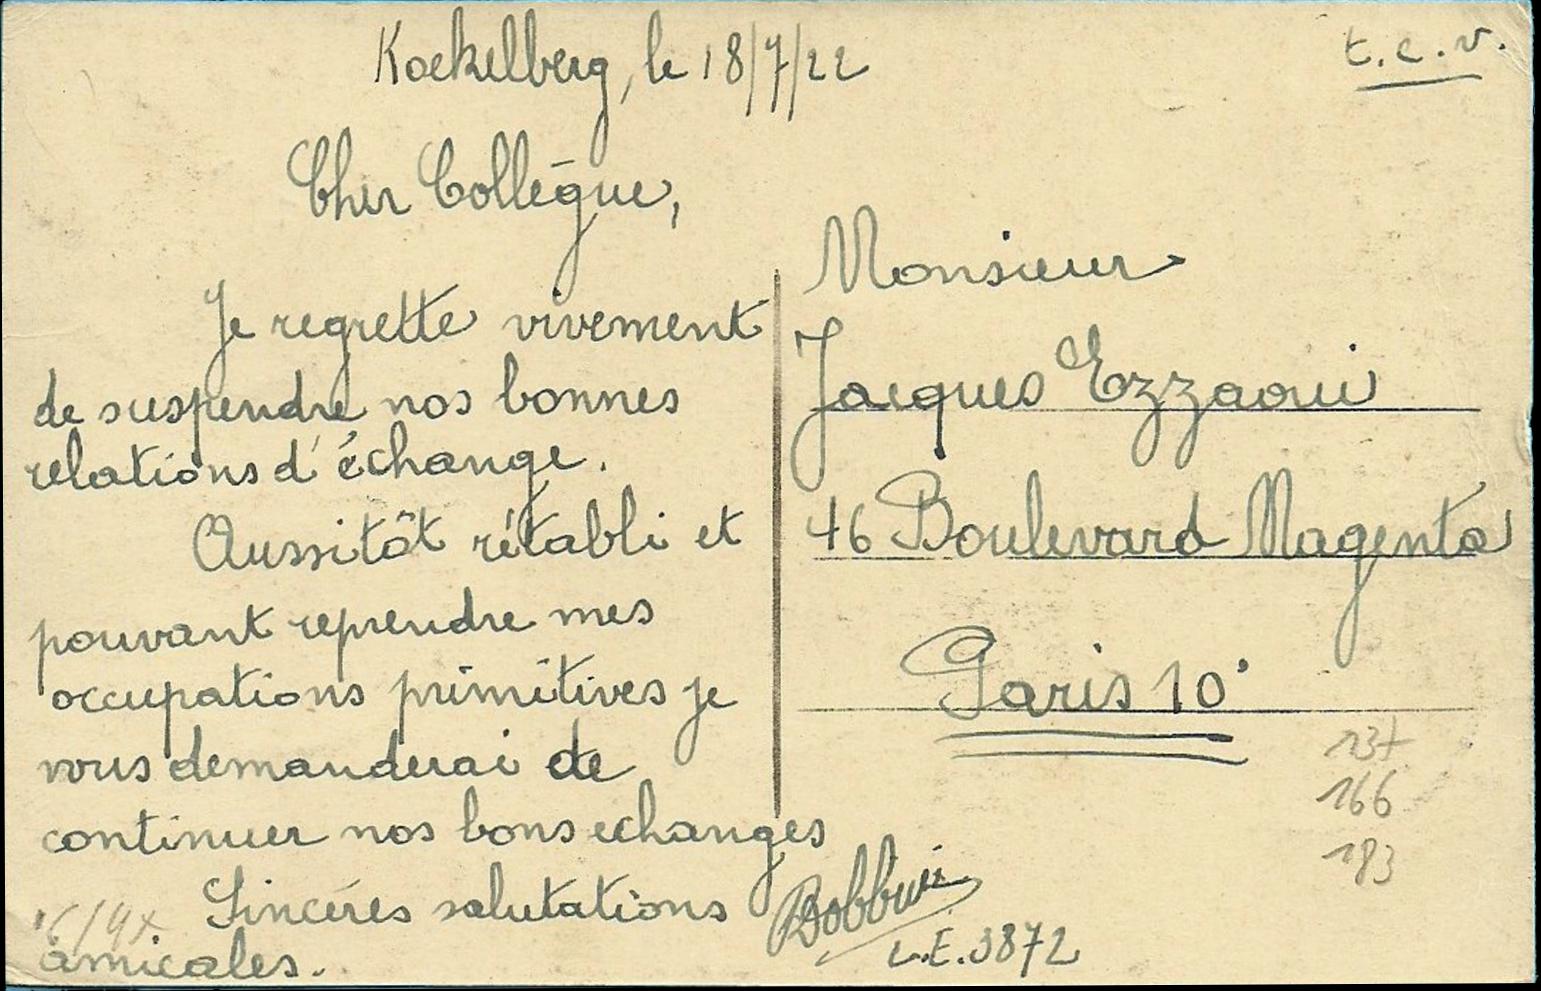 Koekelberg, le 18/7/22
t.c.v.
Cher Collègue,
Je regrette vivement
de suspendre nos bonnes
relations d'échange.
Aussitôt rétabli et
pouvant reprendre mes
occupations primitives je
vous demanderai de
continuer nos bons echanges
Sincéres salutations
amicales.
L.E.3872
Monsieur
Jacques Ezzaoui
46 Boulevard Magenta
Paris 10e
137
166
183